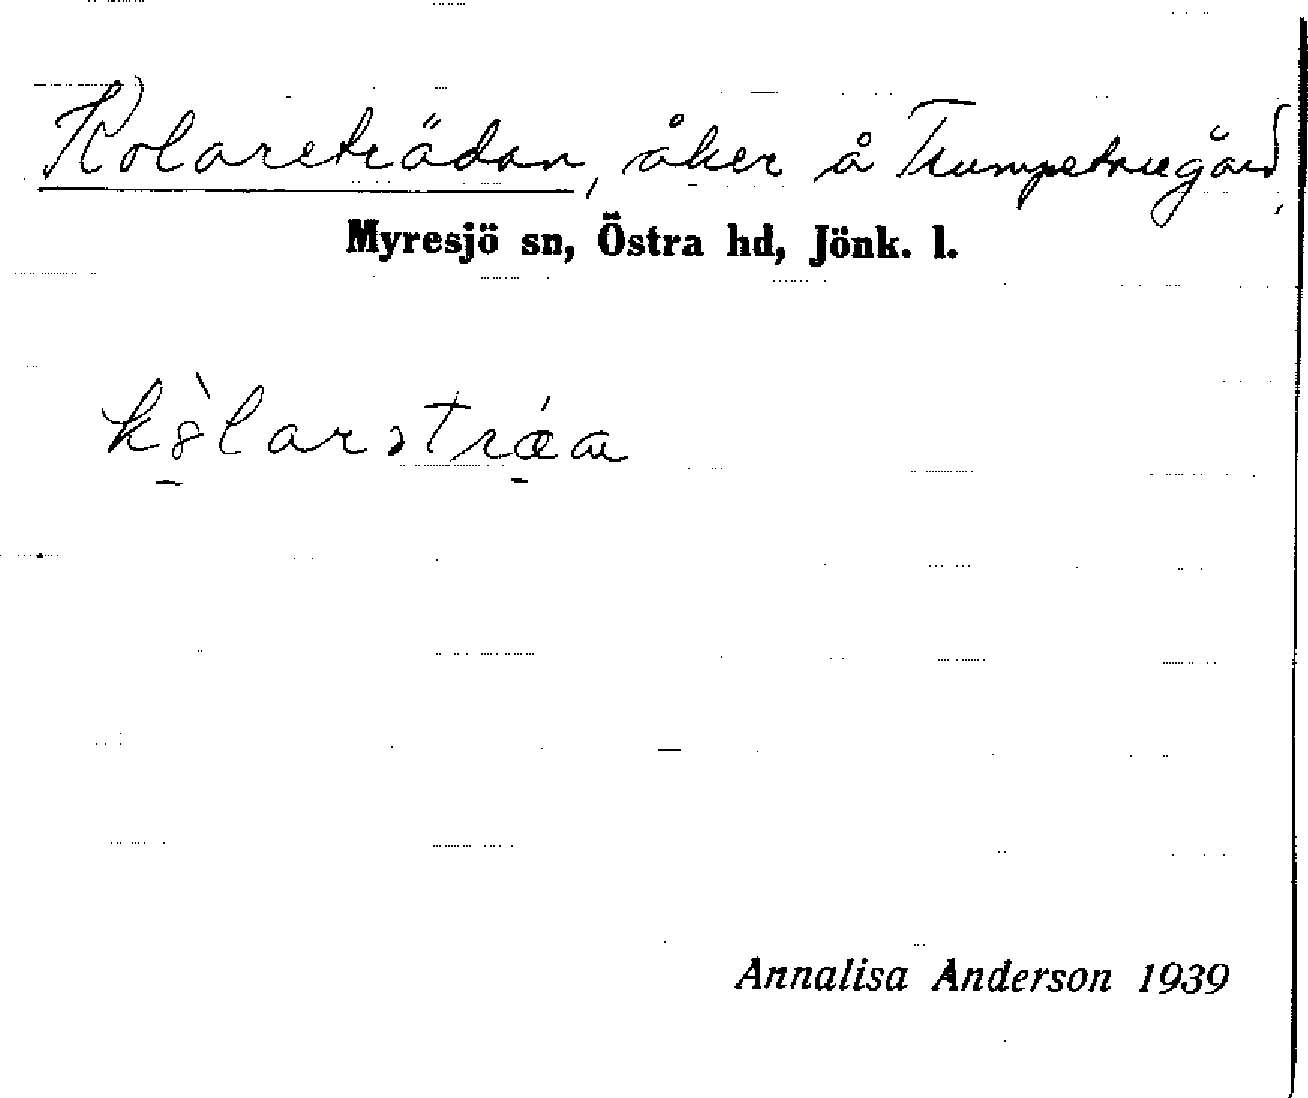 Kolareträdan, åker å Trumpetaregård,
Myresjö sn, Östra hd, Jönk. l.
Annalisa Anderson 1939